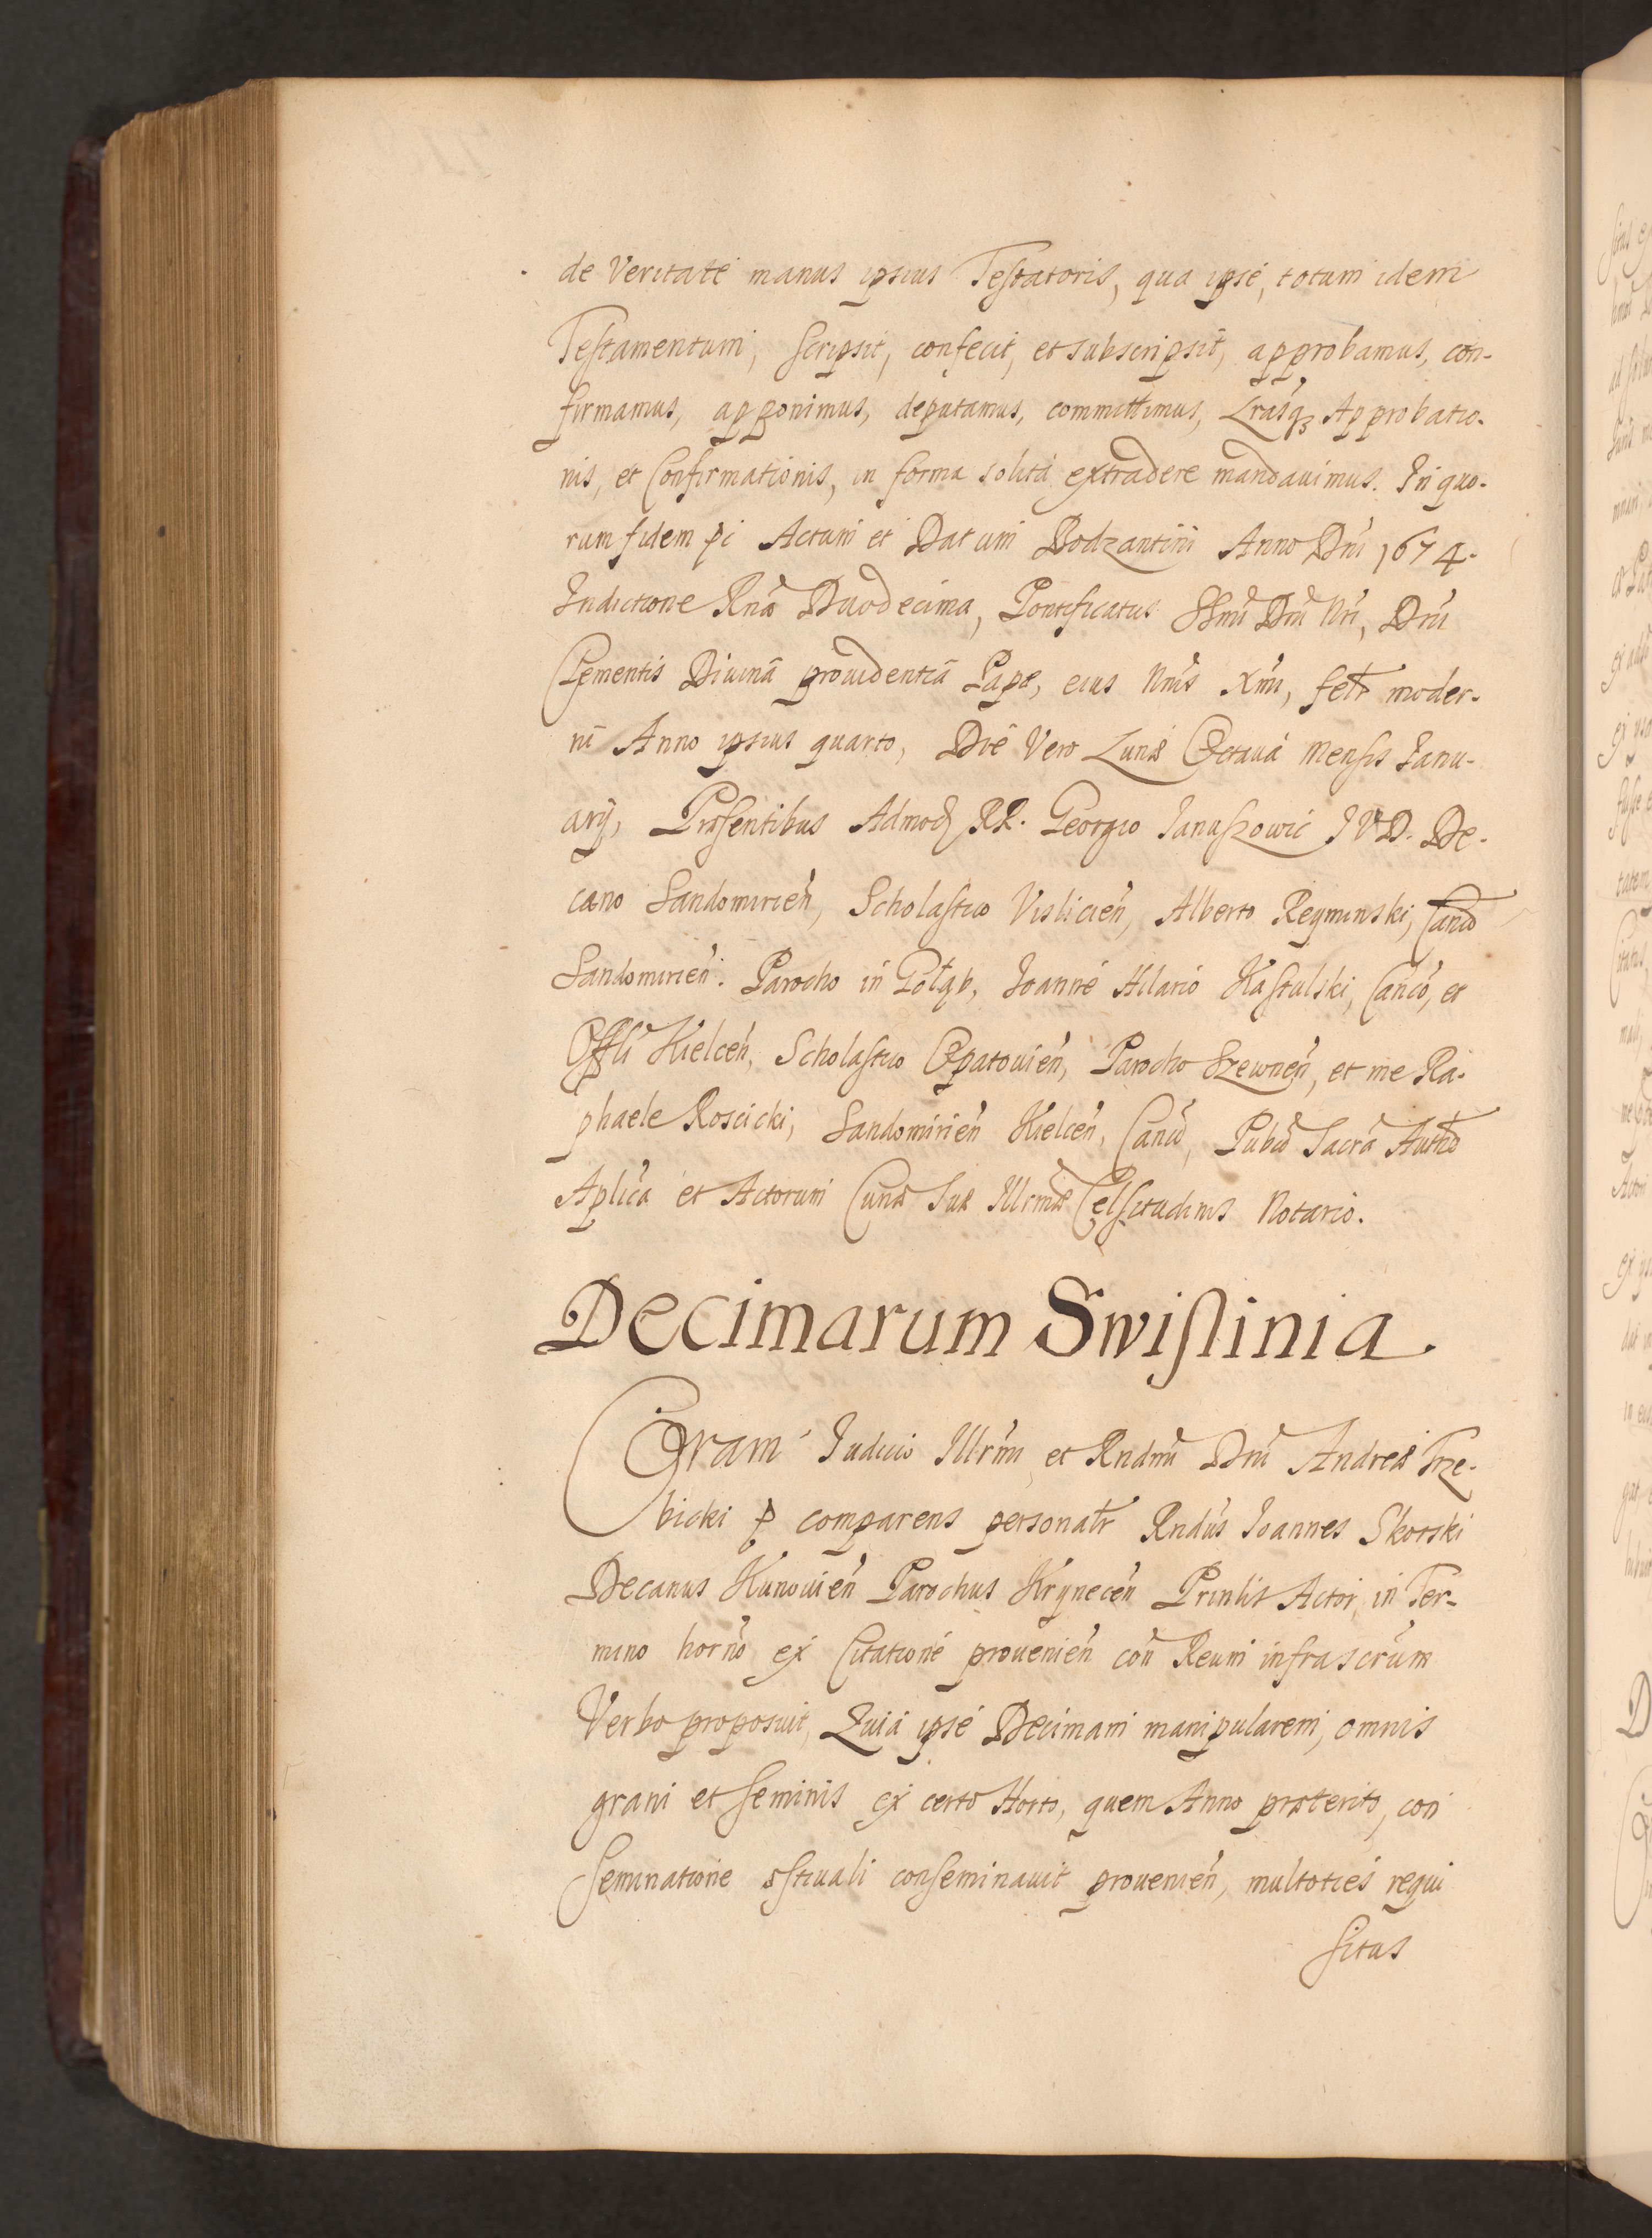 de Veritate manus ipsius Testatoris, qua ipse, totum idem
Testamentum, scripsit, confecit, et subscripsit, approbamus, con-
firmamus, apponimus, deputamus, committimus, Lrasq3 Approbatio-
nis, et Confirmationis, in forma solita extradere mandauimus. In quo-
rum fidem pi Actum et Datum Bodzantini Anno Dni 1674.
Indictione Rna Duodecima, Pontificatus SSmi Dni Nri, Dni
Clementis Diuina prouidentia Papæ, eius Nnis Xmi, fetr moder-
ni Anno ipsius quarto, Die Vero Lunæ Octaua Mensis Janu-
arij, Præsentibus Admod RR. Georgio Januszowic JVD. De-
cano Sandomirien, Scholastico Vislicien, Alberto Reyminski, Canco
Sandomirien. Parocho in Gołąb, Joanne Hilario Kastulski, Canco, et
Offli Kielcen, Scholastico Opatouien, Parocho Szewnen, et me Ra-
phaele Roscicki, Sandomirien Kielcen, Canco, Pubco Sacra Autho
Aplica et Actorum Curiæ Suæ Illrmæ Celsitudinis Notario.
Decimarum Swislinia.
Coram Judicio Illrmi et Rndmi Dni Andreæ Trze-
bicki p comparens personatr Rndus Joannes Skorski
Decanus Kunouien Parochus Krynecen Prinlis Actor, in Ter-
mino horno ex Citatione prouenien con Reum infrascrum
Verbo proposuit, Quia ipse Decimam manipularem, omnis
grani et seminis ex certo Horto, quem Anno præterito, con
seminatione æstiuali conseminauit prouenien, multoties requi
situs